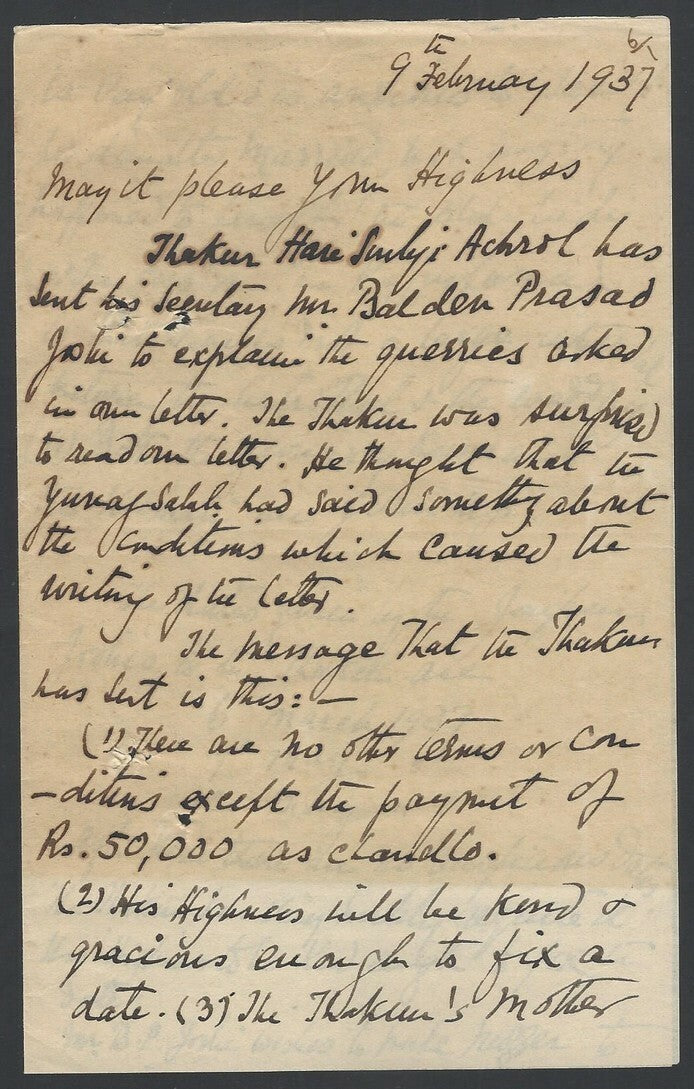 6/-
9th February 1937
May it please Your Highness
Thakur Hari Sinhji Achrol has
sent his secretary Mr. Baldeu Prasad
Joshi to explain the querries asked
in our letter. The Thakur was surprised
to read our letter. He thought that the
Yuvaj Sahib had said something about
the conditions which caused the
writing of the letter.
The message that the Thakur
has sent is this:—
(1) There are no other terms or con
-ditions except the payment of
Rs. 50,000 as chandlo.
(2) His Highness will be kind &
gracious enough to fix a
date. (3) The Thakur's Mother